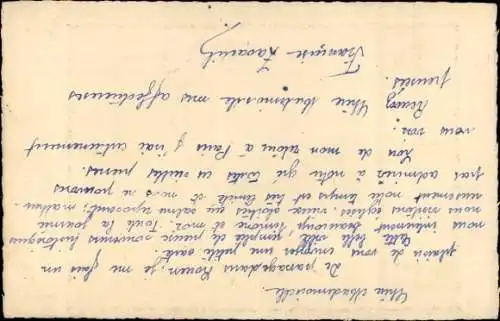 Chère Mademoiselle.
De passage dans Rouen, je me fais un
plaisir de vous envoyer une petite carte
Cette belle ville, remplie de souvenirs historiques
nous intéresse beaucoup Simone et moi. Toute la journée
nous visitons églises, vieux
reusement notre temps est très limité et nous ne pouvons
pas admirer à notre gré toutes ces vieilles pierres.
Lors de mon retour à Paris j'irai certainement
vous voir.
Recevez Chère Mademoiselle mes affectueuses
pensées.
Françoise